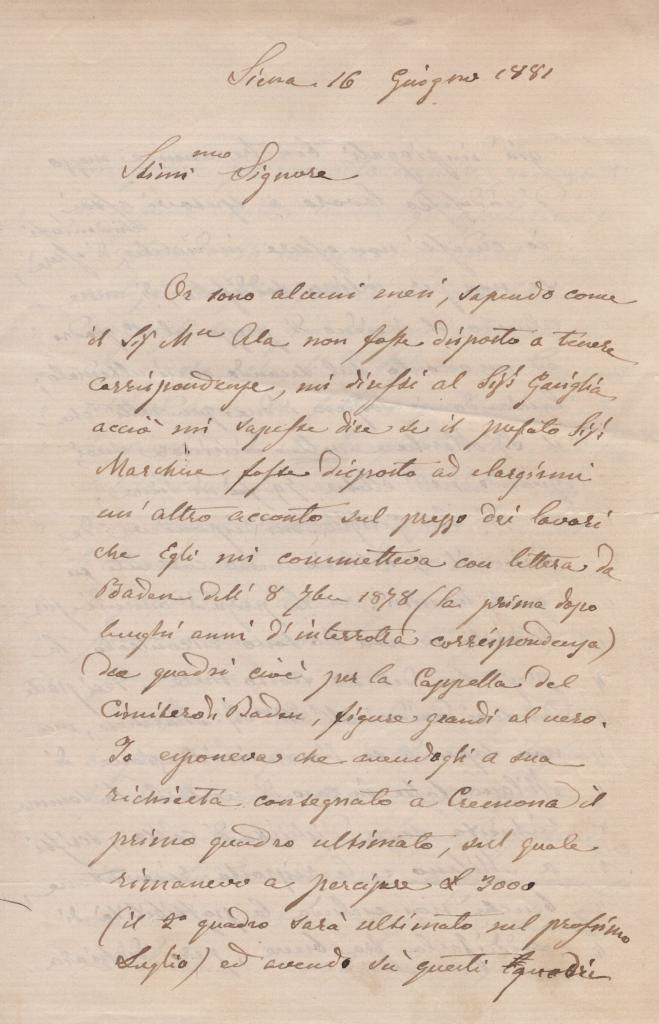 Siena 16 Giugno 1881
Stimi mo Signore
Or sono alcuni mesi, sapendo come
il Sigr Mse Ala non fosse disposto a tenere
corrispondenze, mi diressi al Sigr Gariglia
acciò mi sapesse dire se il prefato Sigr
Marchese fosse disposto ad elargirmi
un' altro acconto sul prezzo dei lavori
che Egli mi commetteva con lettera da
Baden dell' 8 7bre 1878 (la prima dopo
lunghi anni d'interrotta corrispondenza)
due quadri cioè per la Cappella del
Cimitero di Baden, figure grandi al vero.
Io esponeva che avendogli a sua
richiesta consegnato a Cremona il
primo quadro ultimato, sul quale
rimanevo a percipere £ 3000
(il 2º quadro sarà ultimato nel prossimo
Luglio) ed avendo su questi quadri